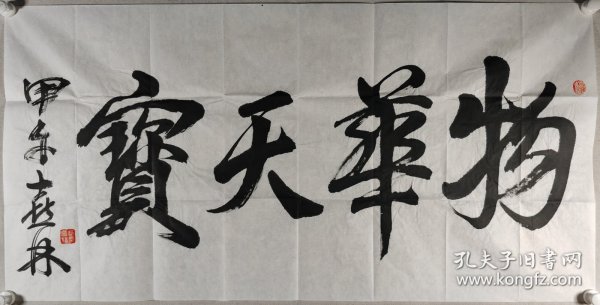 物華天寶
甲午 喜林
孔夫子旧书网
www.kongfz.com